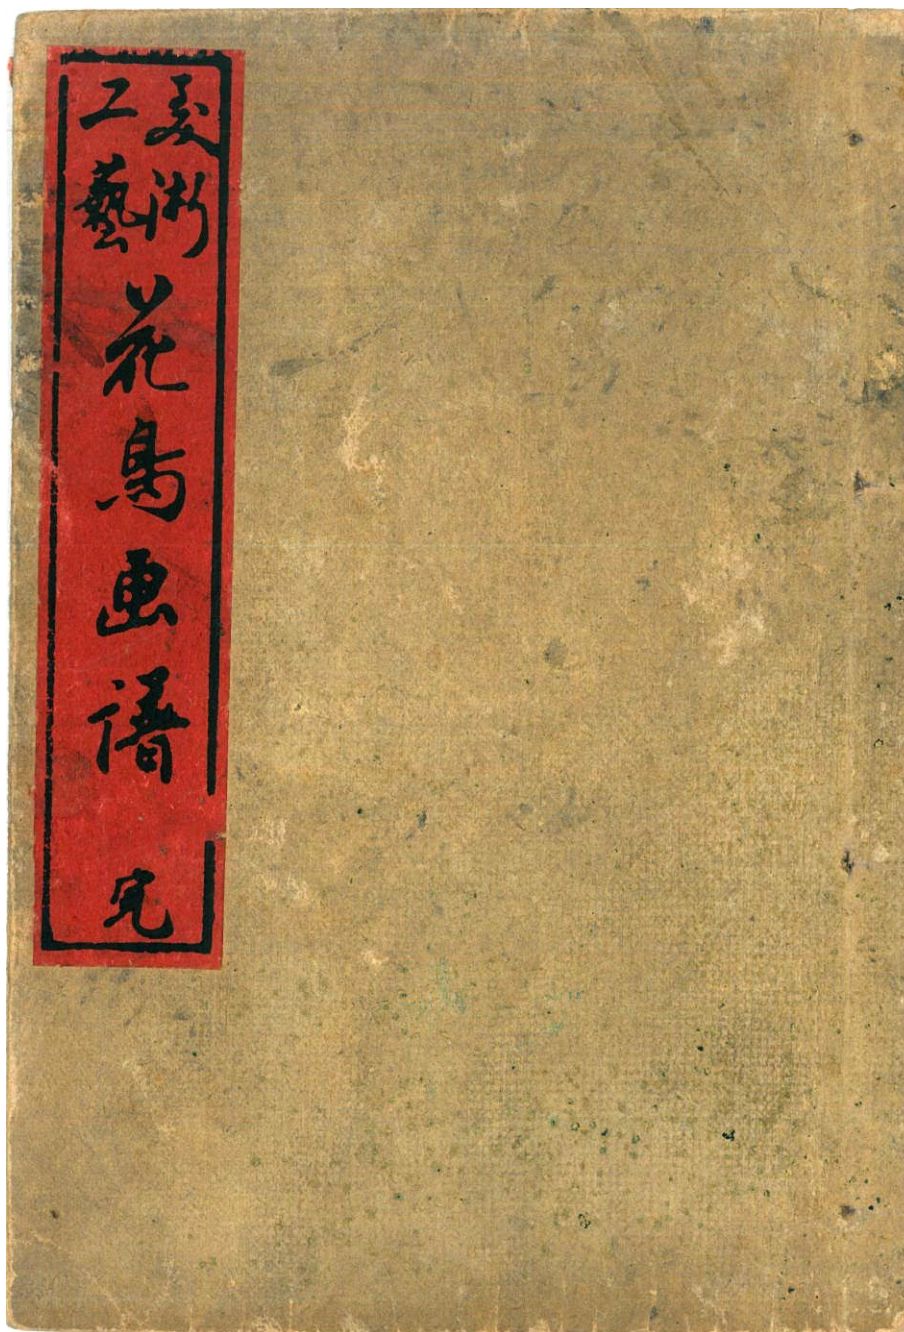 美術
工藝
花鳥画譜
完